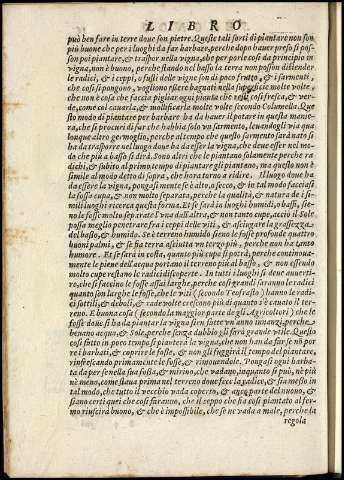 LIBRO
può ben fare in terre doue son pietre. Queste tali sorti di piantare non son
più buone che per i luoghi da far barbare, perche dopo hauer preso si pos-
son poi piantare, & trasfor nella vigna, che per porle così da principio in
vigna, non è buono, perche stando nel basso la terra non posson distender
le radici, & i ceppi, o fusti delle vigne son di poco frutto, & i sarmenti,
che così si pongono, vogliono essere bagnati nella superficie molte volte,
che non è cosa che faccia pigliar ogni pianta che nello così fresca, & ver-
de, come cal cauarla, & mollificarla molte volte secondo Columella. Que
sto modo di piantare per barbare ha da hauer il potare in questa manie-
ra, che si procuri di far che habbia solo vn sarmento, leuandogli via qua
lunque altro germoglio, perche al tempo che questo sarmento sarà nato si
ha da trasporre nel luogo doue ha da esser la vigna, che deue esser nel mo-
do che più a basso si dirà. Sono altri che lo piantano solamente perche ra-
dichi, & subito al primo tempo di piantare gli piantano, ma questo non è
simile al modo detto di sopra, che hora torno a ridire. Il luogo doue ha
da essere la vigna, pongasi mente se è alto, o secco, & in tal modo facciasi
la fossa cupa, & non molto separata, perche la qualità, & natura de i si-
mili luoghi ricerca questa forma. Et se sarà in luoghi humidi, o bassi, sie-
no le fosse molto separate l'vna dall'altra, & non tanto cupe, acciò il Sole
possa meglio penetrare fra i ceppi delle viti, & asciugare la grassezza
del basso. Se è terreno humido sieno le fosse profonde quattro
buoni palmi, & se sia terra asciutta vn terzo più, perche non ha tanto
humore. Et se sarà in costa, quanto più cupa sì potrà, perche continoua-
mente le pieue dell'acqua portano il terreno più al basso, & non essendo
molto cupe restano le radici discoperte. In tutti i luoghi si deue auuerti-
re, che si faccino le fosse assai larghe, perche così grandi saranno le radici
quanto son larghe le fosse, che le viti (secondo Teofrasto) hanno le radi-
ci sottili, & deboli, & rade volte crescono più di quanto è cauato il ter-
reno. E buona cosa (secondo la maggior parte de gli Agricoltori) che le
fosse doue si ha da piantar la vigna sieno fatte vn anno innanzi, perche
beuano acqua, & Sole, perche senza dubbio gli sarà grande vtile. Queste
così fatte in poco tempo si pianterà la vigna, che non han da far se nõ por
re i barbati, & coprire le fosse, & non gli fuggirà il tempo del piantare,
rinfrescando primamente le fosse, & rimouendole. Pongasi ogni barba-
ta da per se nella sua fossa, & mirino, che vadano, inquanto si può, nè più
nè meno, come staua prima nel terreno doue fece la radice, & sia messo in
tal modo, che tutto il vecchio vada coperto, & anco parte del nuouo, &
siano certi quei che così faranno, che il zeppo che sia così piantato al fer-
mo riuscirà buono, & che è impossibile, che se ne vada a male, perche la
regola